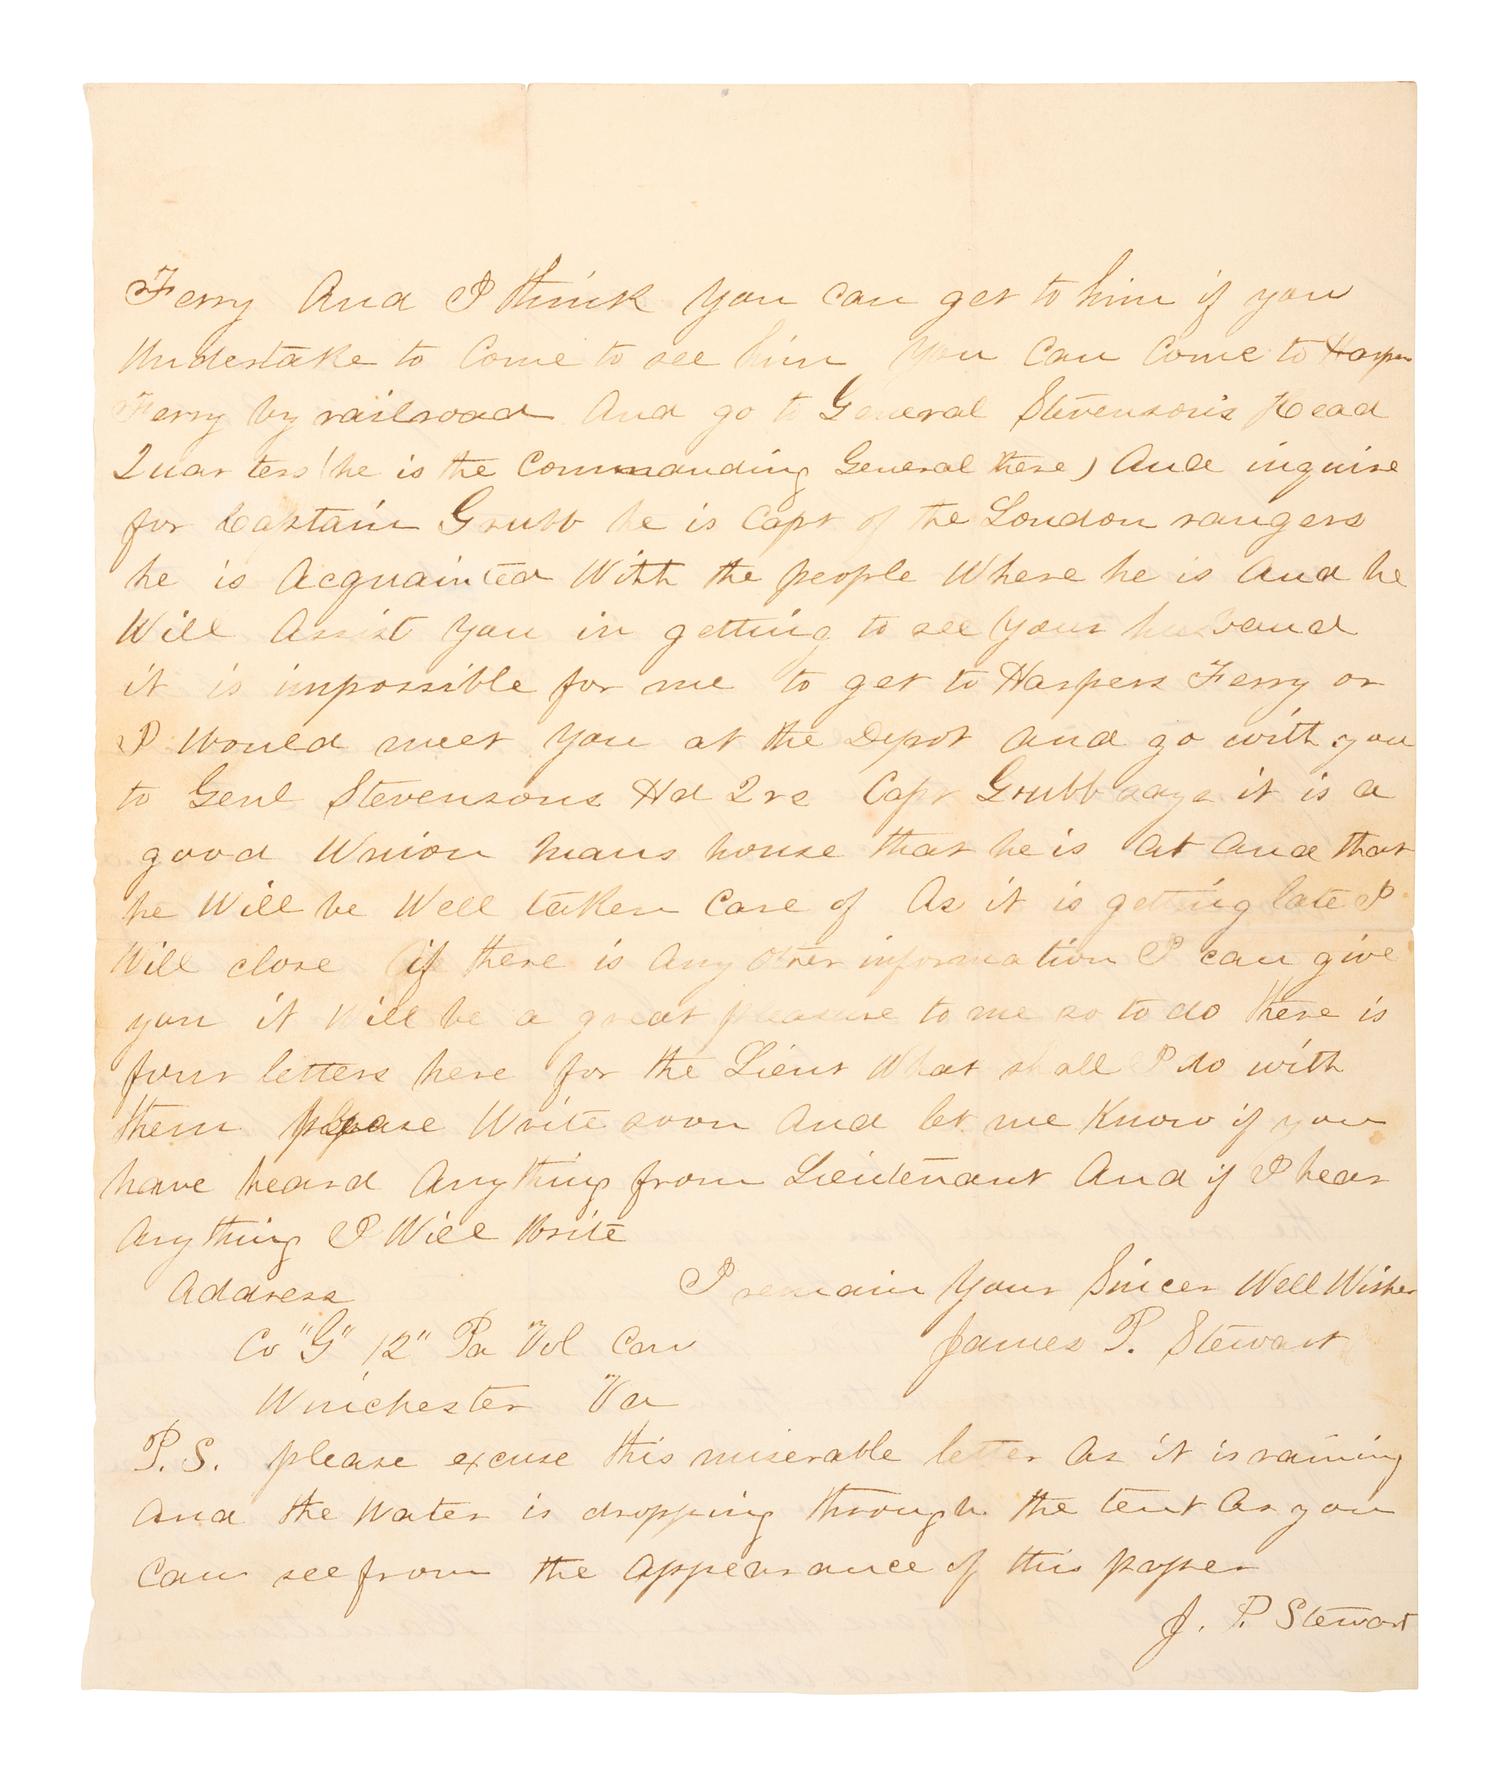 Ferry And I think you can get to him if you
Undertake to Come to see him you Can Come to Harper
Ferry by railroad And go to General Stevenson's Head
Quarters (he is the Commanding General there) And inquire
for Captain Grubb he is Capt of the Loudon rangers
he is Acquainted With the people Where he is And he
Will Assist you in getting to see your husband
it is impossible for me to get to Harpers Ferry or
I Would meet you at the Depot and go with you
to Genl Stevensons Hd Qrs Capt Grubb says it is a
good Union mans house that he is at And that
he Will be Well taken Care of As it is getting late I
Will close if there is Any Other information I can give
you it Will be a great pleasure to me so to do there is
four letters here for the Lieut What shall I do with
them please Write soon And let me Know if you
have heard Anything from Lieutenant And if I hear
Anything I Will Write
Address I remain your Sincer Well Wisher
Co "G" 12" Pa Vol Cav James P. Stewart
Winchester Va
P.S. please excuse this miserable letter As it is raining
And the Water is dropping through the tent As you
Can see from the Appearance of this paper
J. P. Stewart